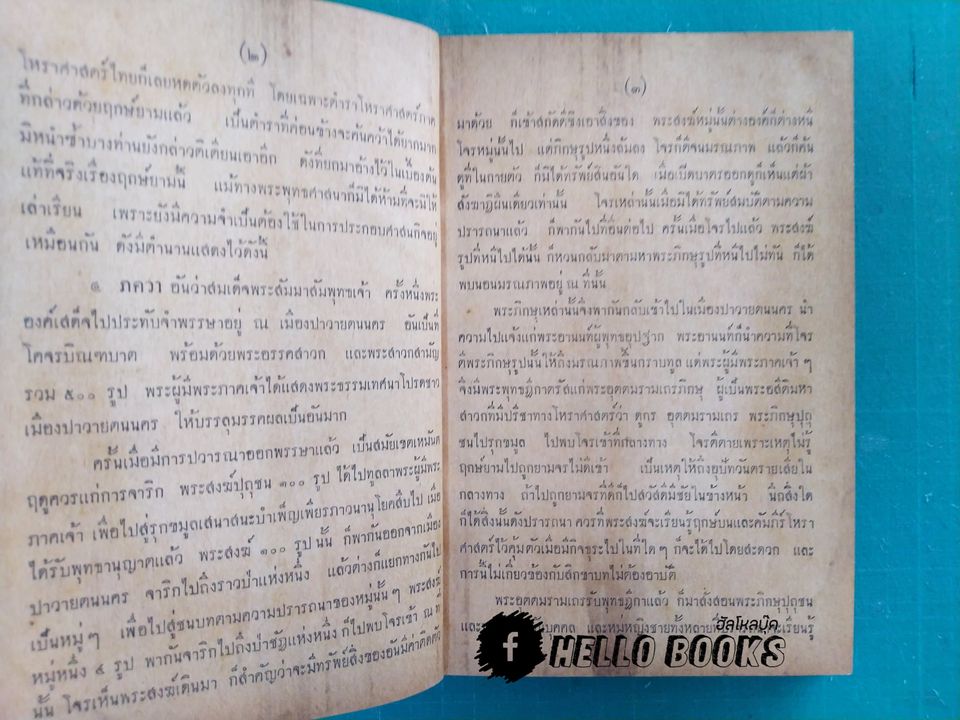 (๒)
โหราศาสตร์ไทยก็เลยหดตัวลงทุกที โดยเฉพาะตำราโหราศาสตร์ภาค
ที่กล่าวด้วยฤกษ์ยามแล้ว เป็นตำราที่ค่อนข้างจะค้นคว้าได้ยากมาก
มิหนำซ้ำบางท่านยังกล่าวติเตียนเอาอีก ดังที่ยกมาอ้างไว้ในเบื้องต้น
แท้ที่จริงเรื่องฤกษ์ยามนี้ แม้ทางพระพุทธศาสนาก็มิได้ห้ามที่จะมิให้
เล่าเรียน เพราะยังมีความจำเป็นต้องใช้ในการประกอบศาสนกิจอยู่
เหมือนกัน ดังมีตำนานแสดงไว้ดังนี้
๏ ภควา อันว่าสมเด็จพระสัมมาสัมพุทธเจ้า ครั้งหนึ่งพระ
องค์เสด็จไปประทับจำพรรษาอยู่ ณ เมืองปาวายตนนคร อันเป็นที่
โคจรบิณฑบาต พร้อมด้วยพระอรรคสาวก และพระสาวกสามัญ
รวม ๕๐๐ รูป พระผู้มีพระภาคเจ้าได้แสดงพระธรรมเทศนาโปรดชาว
เมืองปาวายตนนคร ให้บรรลุมรรคผลเป็นอันมาก
ครั้นเมื่อมีการปวารณาออกพรรษาแล้ว เป็นสมัยเขตเหมันต
ฤดูควรแก่การจาริก พระสงฆ์ปุถุชน ๑๐๐ รูป ได้ไปทูลลาพระผู้มีพระ
ภาคเจ้า เพื่อไปสู่รุกขมูลเสนาสนะบำเพ็ญเพียรภาวนานุโยคสืบไป เมื่อ
ได้รับพุทธานุญาตแล้ว พระสงฆ์ ๑๐๐ รูปนั้น ก็พากันออกจากเมือง
ปาวายตนนคร จาริกไปถึงราวป่าแห่งหนึ่ง แล้วต่างก็แยกทางกันไป
เป็นหมู่ๆ เพื่อไปสู่ชนบทตามความปรารถนาของหมู่นั้นๆ พระสงฆ์
หมู่หนึ่ง ๕ รูป พากันจาริกไปถึงป่าชัฏแห่งหนึ่ง ก็ไปพบโจรเข้า ณ ที่
นั้น โจรเห็นพระสงฆ์เดินมา ก็สำคัญว่าจะมีทรัพย์สิ่งของอันมีค่าติดตัว
(๓)
มาด้วย ก็เข้าสกัดตีชิงเอาสิ่งของ พระสงฆ์หมู่นั้นต่างองค์ก็ต่างหนี
โจรหมู่นั้นไป แต่ภิกษุรูปหนึ่งล้มลง โจรก็ตีจนมรณภาพ แล้วก็ค้น
ดูที่ในกายตัว ก็มิได้ทรัพย์สินอันใด เมื่อเปิดบาตรออกดูก็เห็นแต่ผ้า
สังฆาฏิผืนเดียวเท่านั้น โจรเหล่านั้นเมื่อมิได้ทรัพย์สมบัติตามความ
ปรารถนาแล้ว ก็พากันไปที่อื่นต่อไป ครั้นเมื่อโจรไปแล้ว พระสงฆ์
รูปที่หนีไปได้นั้น ก็หวนกลับมาตามหาพระภิกษุรูปที่หนีไปไม่ทัน ก็ได้
พบนอนมรณภาพอยู่ ณ ที่นั้น
พระภิกษุเหล่านั้นจึงพากันกลับเข้าไปในเมืองปาวายตนนคร นำ
ความไปแจ้งแก่พระอานนท์ผู้พุทธอุปฐาก พระอานนท์ก็นำความที่โจร
ตีพระภิกษุรูปนั้นให้ถึงมรณภาพขึ้นกราบทูล แต่พระผู้มีพระภาคเจ้าๆ
จึงมีพระพุทธฎีกาตรัสแก่พระอุตตมรามเถรภิกษุ ผู้เป็นพระอสีติมหา
สาวกที่มีปรีชาทางโหราศาสตร์ว่า ดูกร อุตตมรามเถร พระภิกษุปุถุ
ชนไปรุกขมูล ไปพบโจรเข้าที่กลางทาง โจรตีตายเพราะเหตุไม่รู้
ฤกษ์ยามไปถูกยามจรไม่ดีเข้า เป็นเหตุให้ถึงอุปัทวันตรายเสียใน
กลางทาง ถ้าไปถูกยามจรที่ดีก็ไปสวัสดีมีชัยในข้างหน้า นึกสิ่งใด
ก็ได้สิ่งนั้นดังปรารถนา ควรที่พระสงฆ์จะเรียนรู้ฤกษ์บนและคัมภีร์โหรา
ศาสตร์ไว้คุ้มตัวเมื่อมีกิจธุระไปในที่ใดๆ ก็จะได้ไปโดยสะดวก และ
การนี้ไม่เกี่ยวข้องกับสิกขาบทไม่ต้องอาบัติ
พระอุตตมรามเถรรับพุทธฎีกาแล้ว ก็มาสั่งสอนพระภิกษุปุถุชน
และ บุคคล และหมู่หญิงชายทั้งหลายที่ จะเรียนรู้
ฮัลโหลบุ๊ค
f HELLO BOOKS